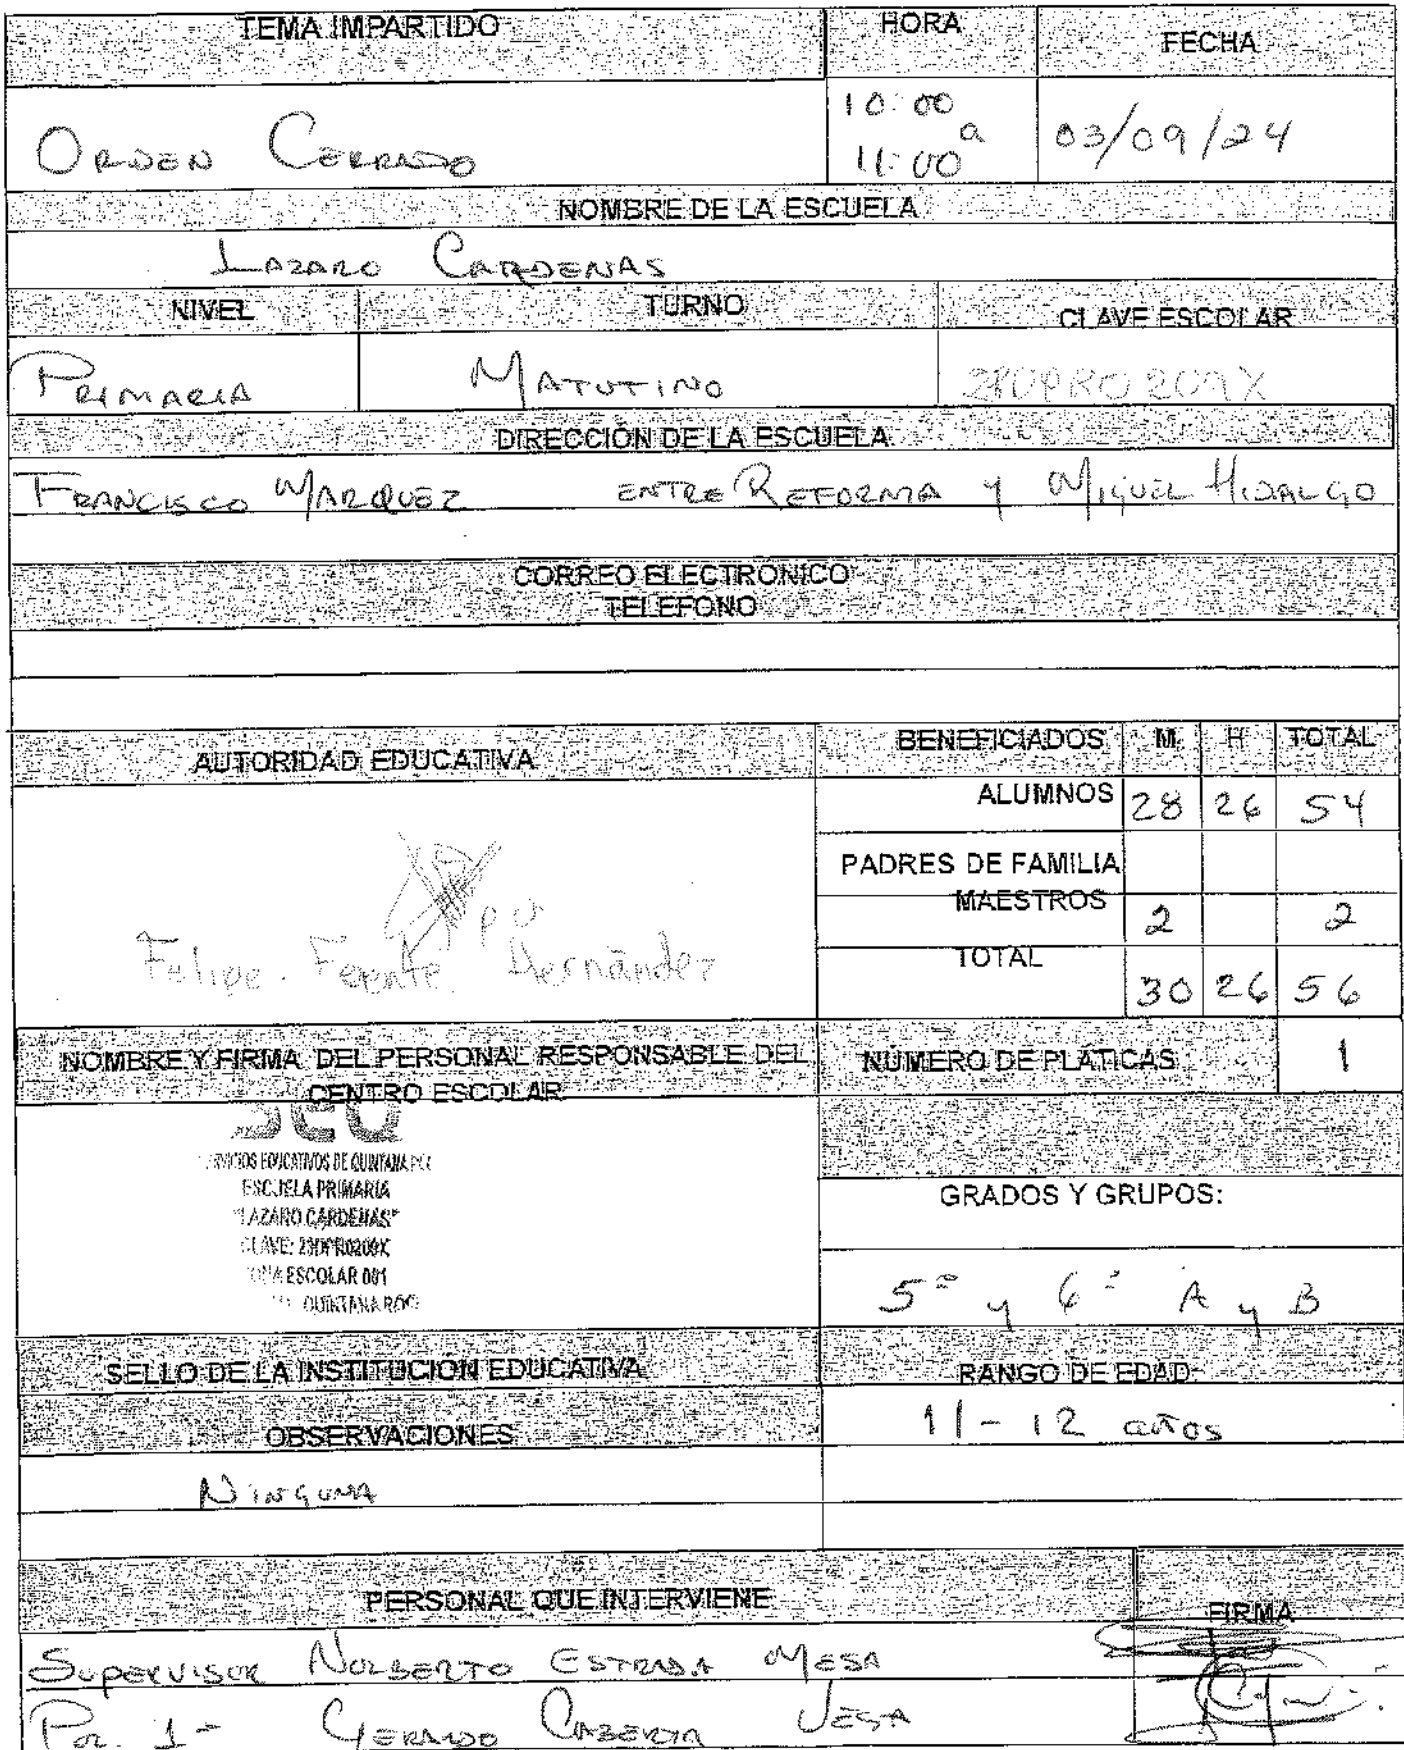 TEMA IMPARTIDO HORA FECHA
ORDEN CERRADO 10:00 a 11:00 03/09/24
NOMBRE DE LA ESCUELA
LAZARO CARDENAS
NIVEL TURNO CLAVE ESCOLAR
PRIMARIA MATUTINO
DIRECCIÓN DE LA ESCUELA
FRANCISCO MARQUEZ ENTRE REFORMA Y MIGUEL HIDALGO
CORREO ELECTRONICO
TELEFONO
AUTORIDAD EDUCATIVA BENEFICIADOS M H TOTAL
ALUMNOS 28 26 54
PADRES DE FAMILIA
MAESTROS 2 2
TOTAL 30 26 56
Felipe Hernández
NOMBRE Y FIRMA DEL PERSONAL RESPONSABLE DEL CENTRO ESCOLAR
NÚMERO DE PLÁTICAS 1
SEQ
EDUCATIVOS DE QUINTANA
ESCUELA PRIMARIA
"LAZARO CARDENAS"
CLAVE:
ESCOLAR 001
QUINTANA ROO
GRADOS Y GRUPOS:
5º y 6º A y B
SELLO DE LA INSTITUCIÓN EDUCATIVA RANGO DE EDAD:
OBSERVACIONES 11 - 12 años
NINGUNA
PERSONAL QUE INTERVIENE FIRMA
SUPERVISOR NORBERTO ESTRADA MESA
POL. 1- GERARDO VEGA